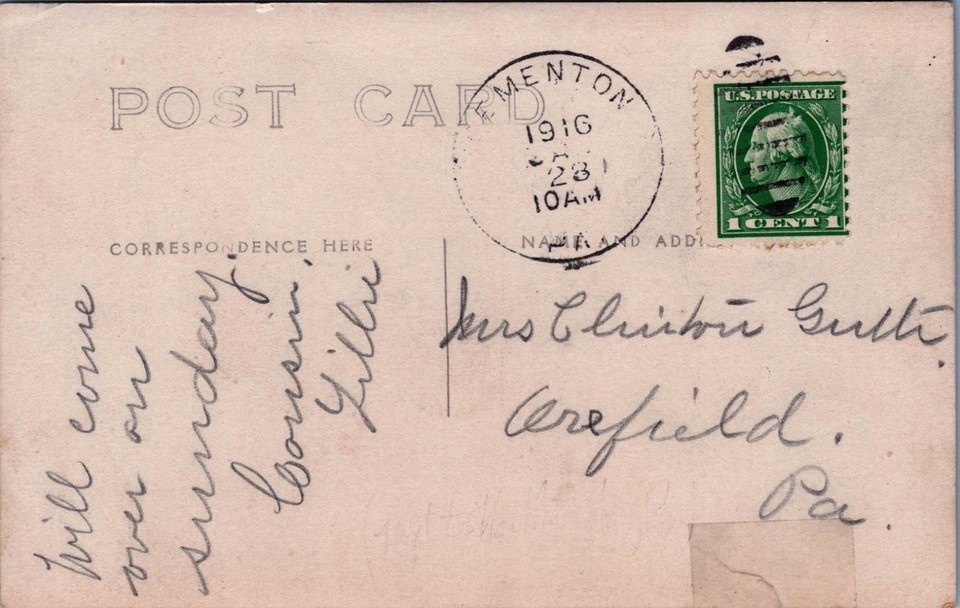 POST CARD
MENTON
1916
28
10 AM
PA
U.S. POSTAGE
1 CENT 1
CORRESPONDENCE HERE
NAME AND ADD
Will come
over on
sunday.
Cousin
Lillie
Mrs Clinton Guth.
Orefield.
Pa.